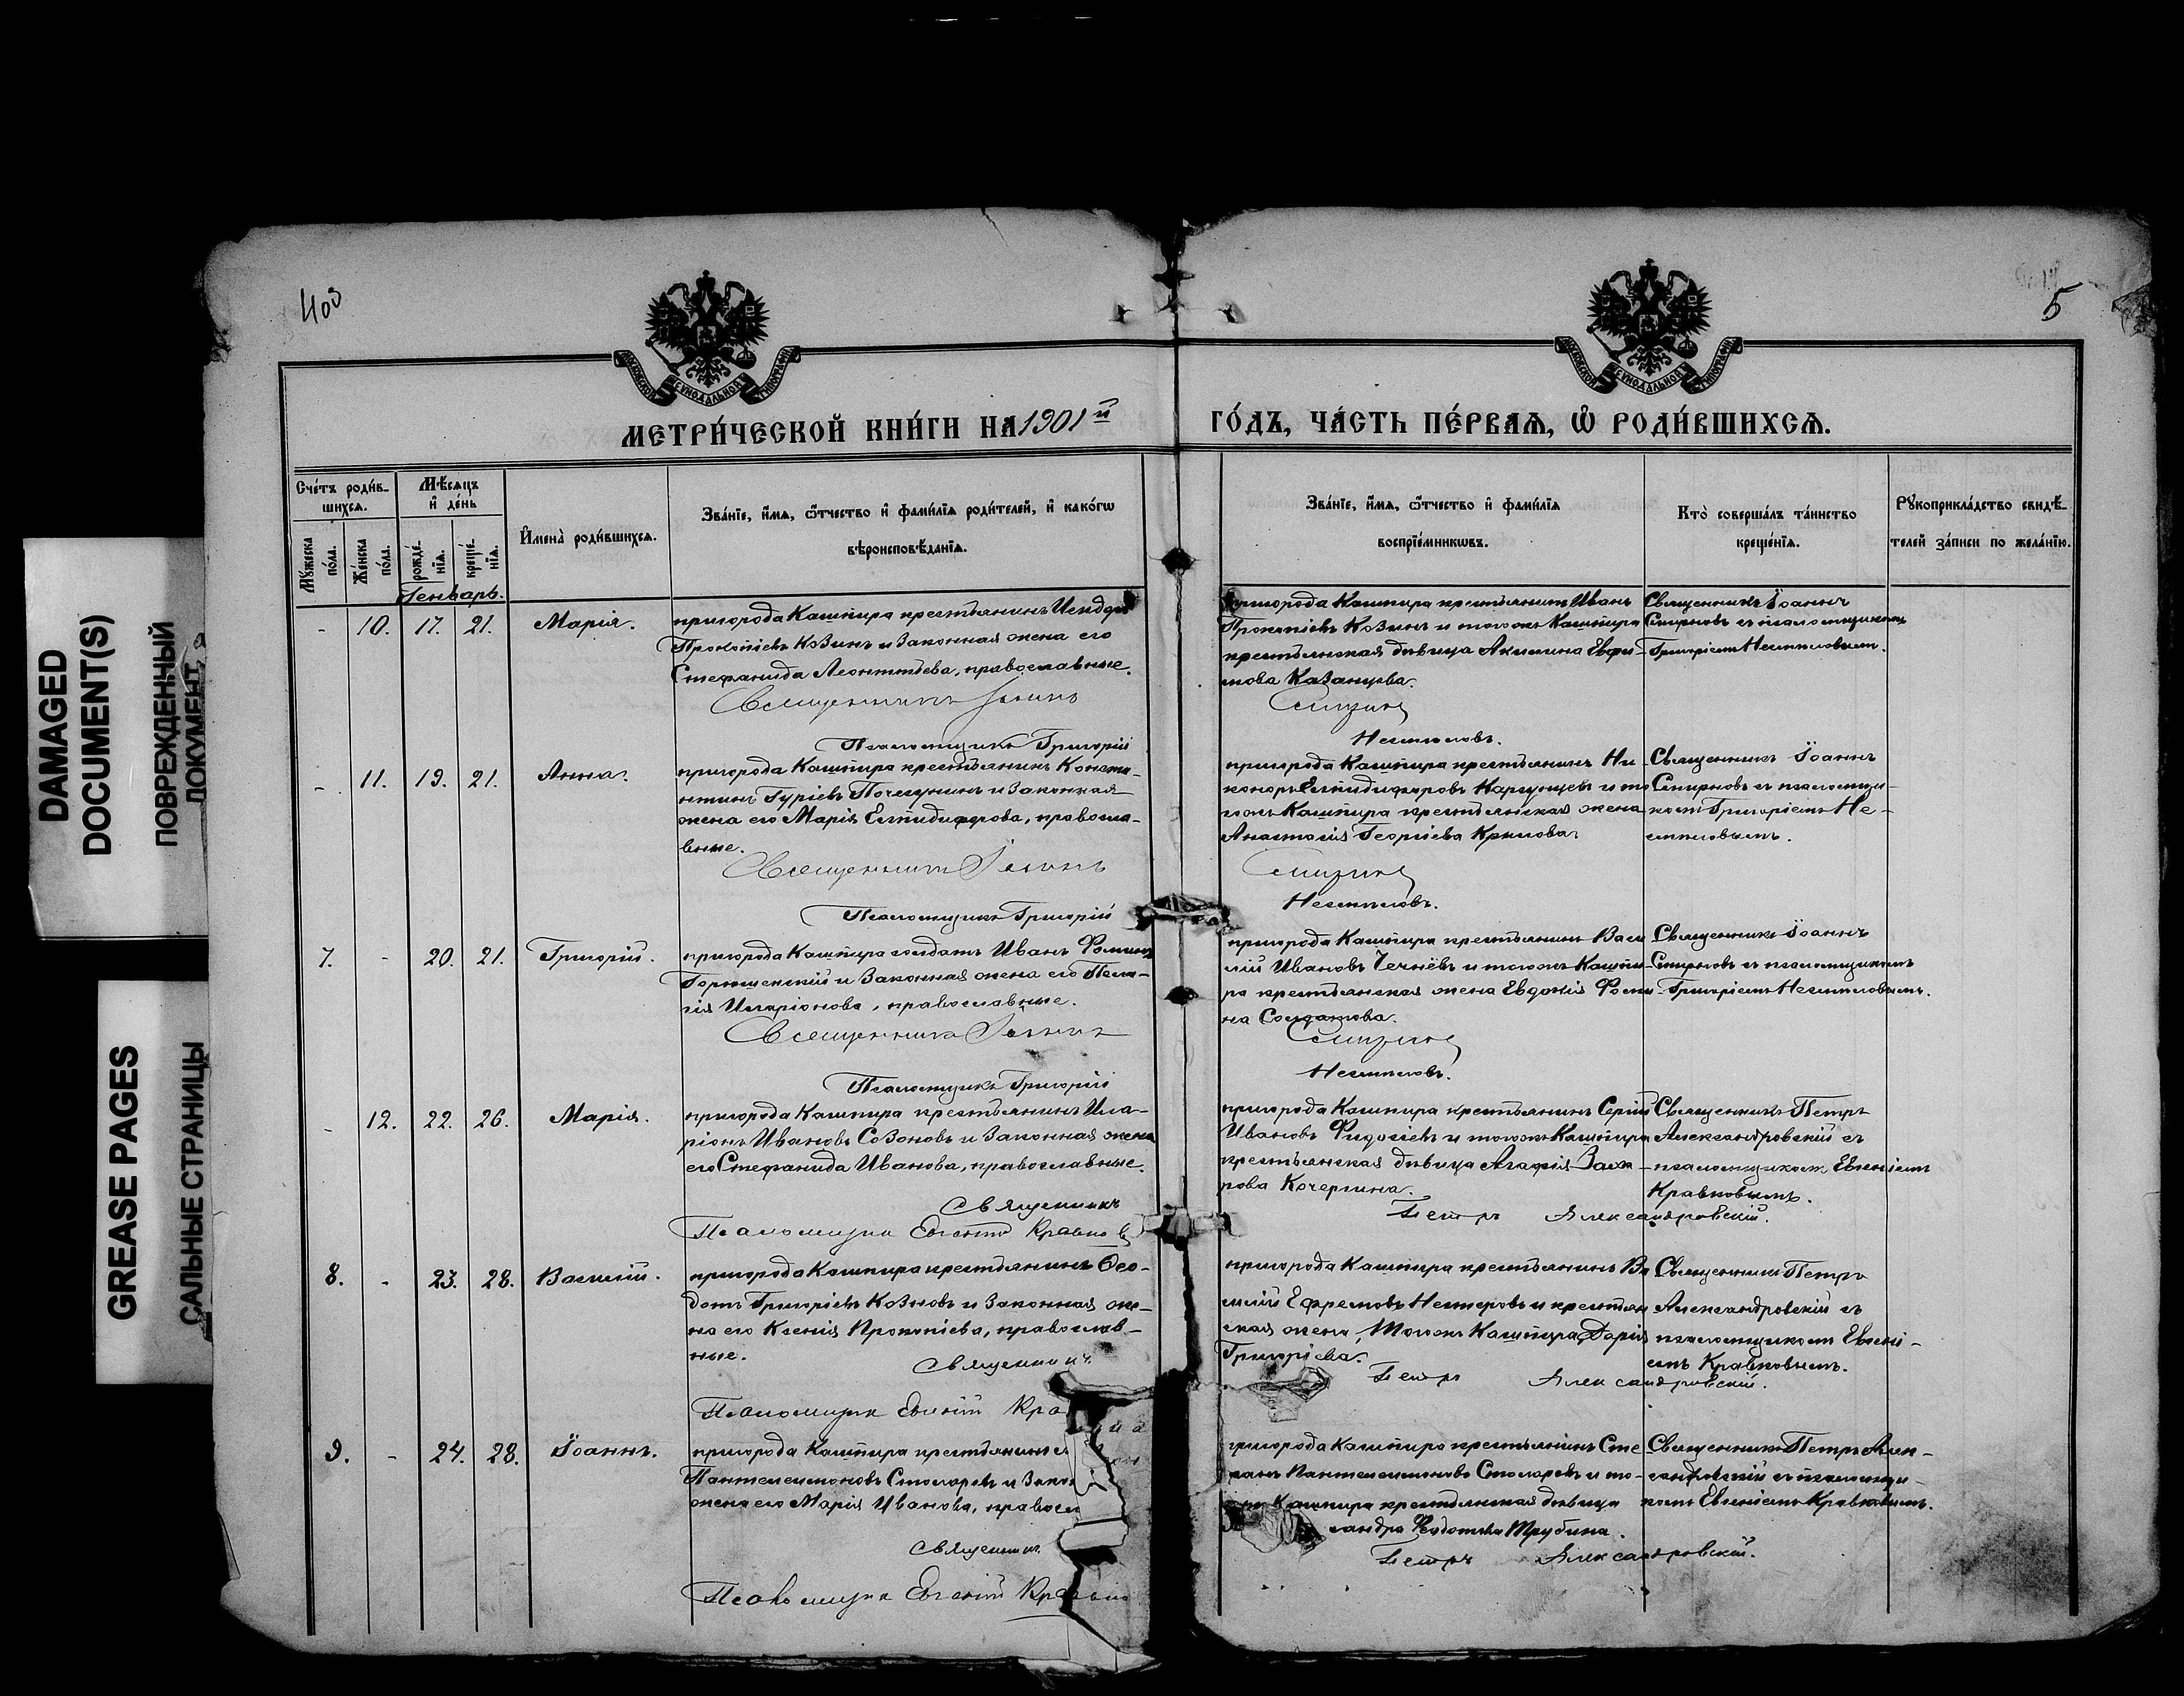 403
5
МОСКОВСКОЙ СѴНОДАЛЬНОЙ ТИПОГРАФИИ
МОСКОВСКОЙ СѴНОДАЛЬНОЙ ТИПОГРАФИИ
МЕТРИ́ЧЕСКОЙ КНИ́ГИ НА 1901й ГО́ДЪ, ЧА́СТЬ ПЕ́РВАѦ, Ѡ҆ РОДИ́ВШИХСѦ.
Сче́тъ роди́в-
шихсѧ.
Мꙋжеска по́ла.
Же́нска по́ла.
Мѣ́сѧцъ
и҆ де́нь
рожде́-
нїѧ.
креще́-
нїѧ.
И҆мена̀ роди́вшихсѧ.
Зва́нїе, и҆́мѧ, ѻ҆́тчество и҆ фами́лїѧ роди́телей, и҆ како́гѡ
вѣроисповѣ́данїѧ.
Зва́нїе, и҆́мѧ, ѻ҆́тчество и҆ фами́лїѧ
воспрїе́мникѡвъ.
Кто̀ соверша́лъ та́инство
креще́нїѧ.
Рꙋкоприкла́дство свидѣ́-
телей за́писи по жела́нїю.
Генварь.
- 10. 17. 21. Марія.
пригорода Кашпира крестьянинъ
Прокопіевъ Козинъ и законная жена его
Стефанида Леонтьева, православные.
Священникъ Іоаннъ
Псаломщикъ Григорій
пригорода Кашпира крестьянинъ Иванъ
Прокопіевъ Козинъ и тогожъ Кашпира
крестьянская дѣвица Акилина Евфи-
мова Казанцева.
Смирновъ
Несмѣловъ.
Священникъ Іоаннъ
Смирновъ съ псаломщикомъ
Григоріемъ Несмѣловымъ.
- 11. 19. 21. Анна.
пригорода Кашпира крестьянинъ Конста-
нтинъ Гуріевъ и законная
жена его Марія Елпидифорова, правосла-
вные.
Священникъ Іоаннъ
Псаломщикъ Григорій
пригорода Кашпира крестьянинъ Ни-
каноръ Елпидифоровъ и то-
гожъ Кашпира крестьянская жена
Анастасія Георгіева Крылова.
Смирновъ
Несмѣловъ.
Священникъ Іоаннъ
Смирновъ съ псаломщи-
комъ Григоріемъ Не-
смѣловымъ.
7. - 20. 21. Григорій.
пригорода Кашпира солдатъ Иванъ Фоминъ
и законная жена его Пела-
гія Иларіонова, православные.
Священникъ Іоаннъ
Псаломщикъ Григорій
пригорода Кашпира крестьянинъ Васи
лій Ивановъ Чечнёвъ и тогожъ Кашпи-
ра крестьянская жена Евдокія Фоми-
на Солдатова.
Смирновъ
Несмѣловъ.
Священникъ Іоаннъ
Смирновъ съ псаломщикомъ
Григоріемъ Несмѣловымъ.
- 12. 22. 26. Марія.
пригорода Кашпира крестьянинъ Ила-
ріонъ Ивановъ Созоновъ и законная жена
его Стефанида Иванова, православные.
Священникъ
Псаломщикъ Евгеній Кравковъ
пригорода Кашпира крестьянинъ Сергій
Ивановъ и тогожъ Кашпира
крестьянская дѣвица Агафія Заха-
рова Кочергина.
Петръ Александровскій.
Священникъ Петръ
Александровскій съ
псаломщикомъ Евгеніемъ
Кравковымъ.
8. - 23. 28. Василій.
пригорода Кашпира крестьянинъ Ѳео-
дотъ Григоріевъ Козновъ и законная же-
на его Ксенія Прокопіева, православ-
ные.
Священникъ
Псаломщикъ Евгеній Кра
пригорода Кашпира крестьянинъ Ва
силій Ефремовъ Нестеровъ и крестьян
ская жена, тогожъ Кашпира, Дарія
Григоріева.
Петръ Александровскій.
Священникъ Петръ
Александровскій съ
псаломщикомъ Евгені-
емъ Кравковымъ.
9. - 24. 28. Іоаннъ.
пригорода Кашпира крестьянинъ
Пантелеимоновъ Столяровъ и закон
жена его Марія Иванова, правосл
Священникъ
Псаломщикъ Евгеній
пригорода Кашпира крестьянинъ Сте
фанъ Пантелеимоновъ Столяровъ и то-
гожъ Кашпира крестьянская дѣвица
сандра Ѳеодотова Трубина.
Петръ Александровскій.
Священникъ Петръ Алек-
сандровскій съ псаломщи-
комъ Евгеніемъ Кравковымъ.
DAMAGED
DOCUMENT(S)
ПОВРЕЖДЕННЫЙ
ДОКУМЕНТ
GREASE PAGES
САЛЬНЫЕ СТРАНИЦЫ